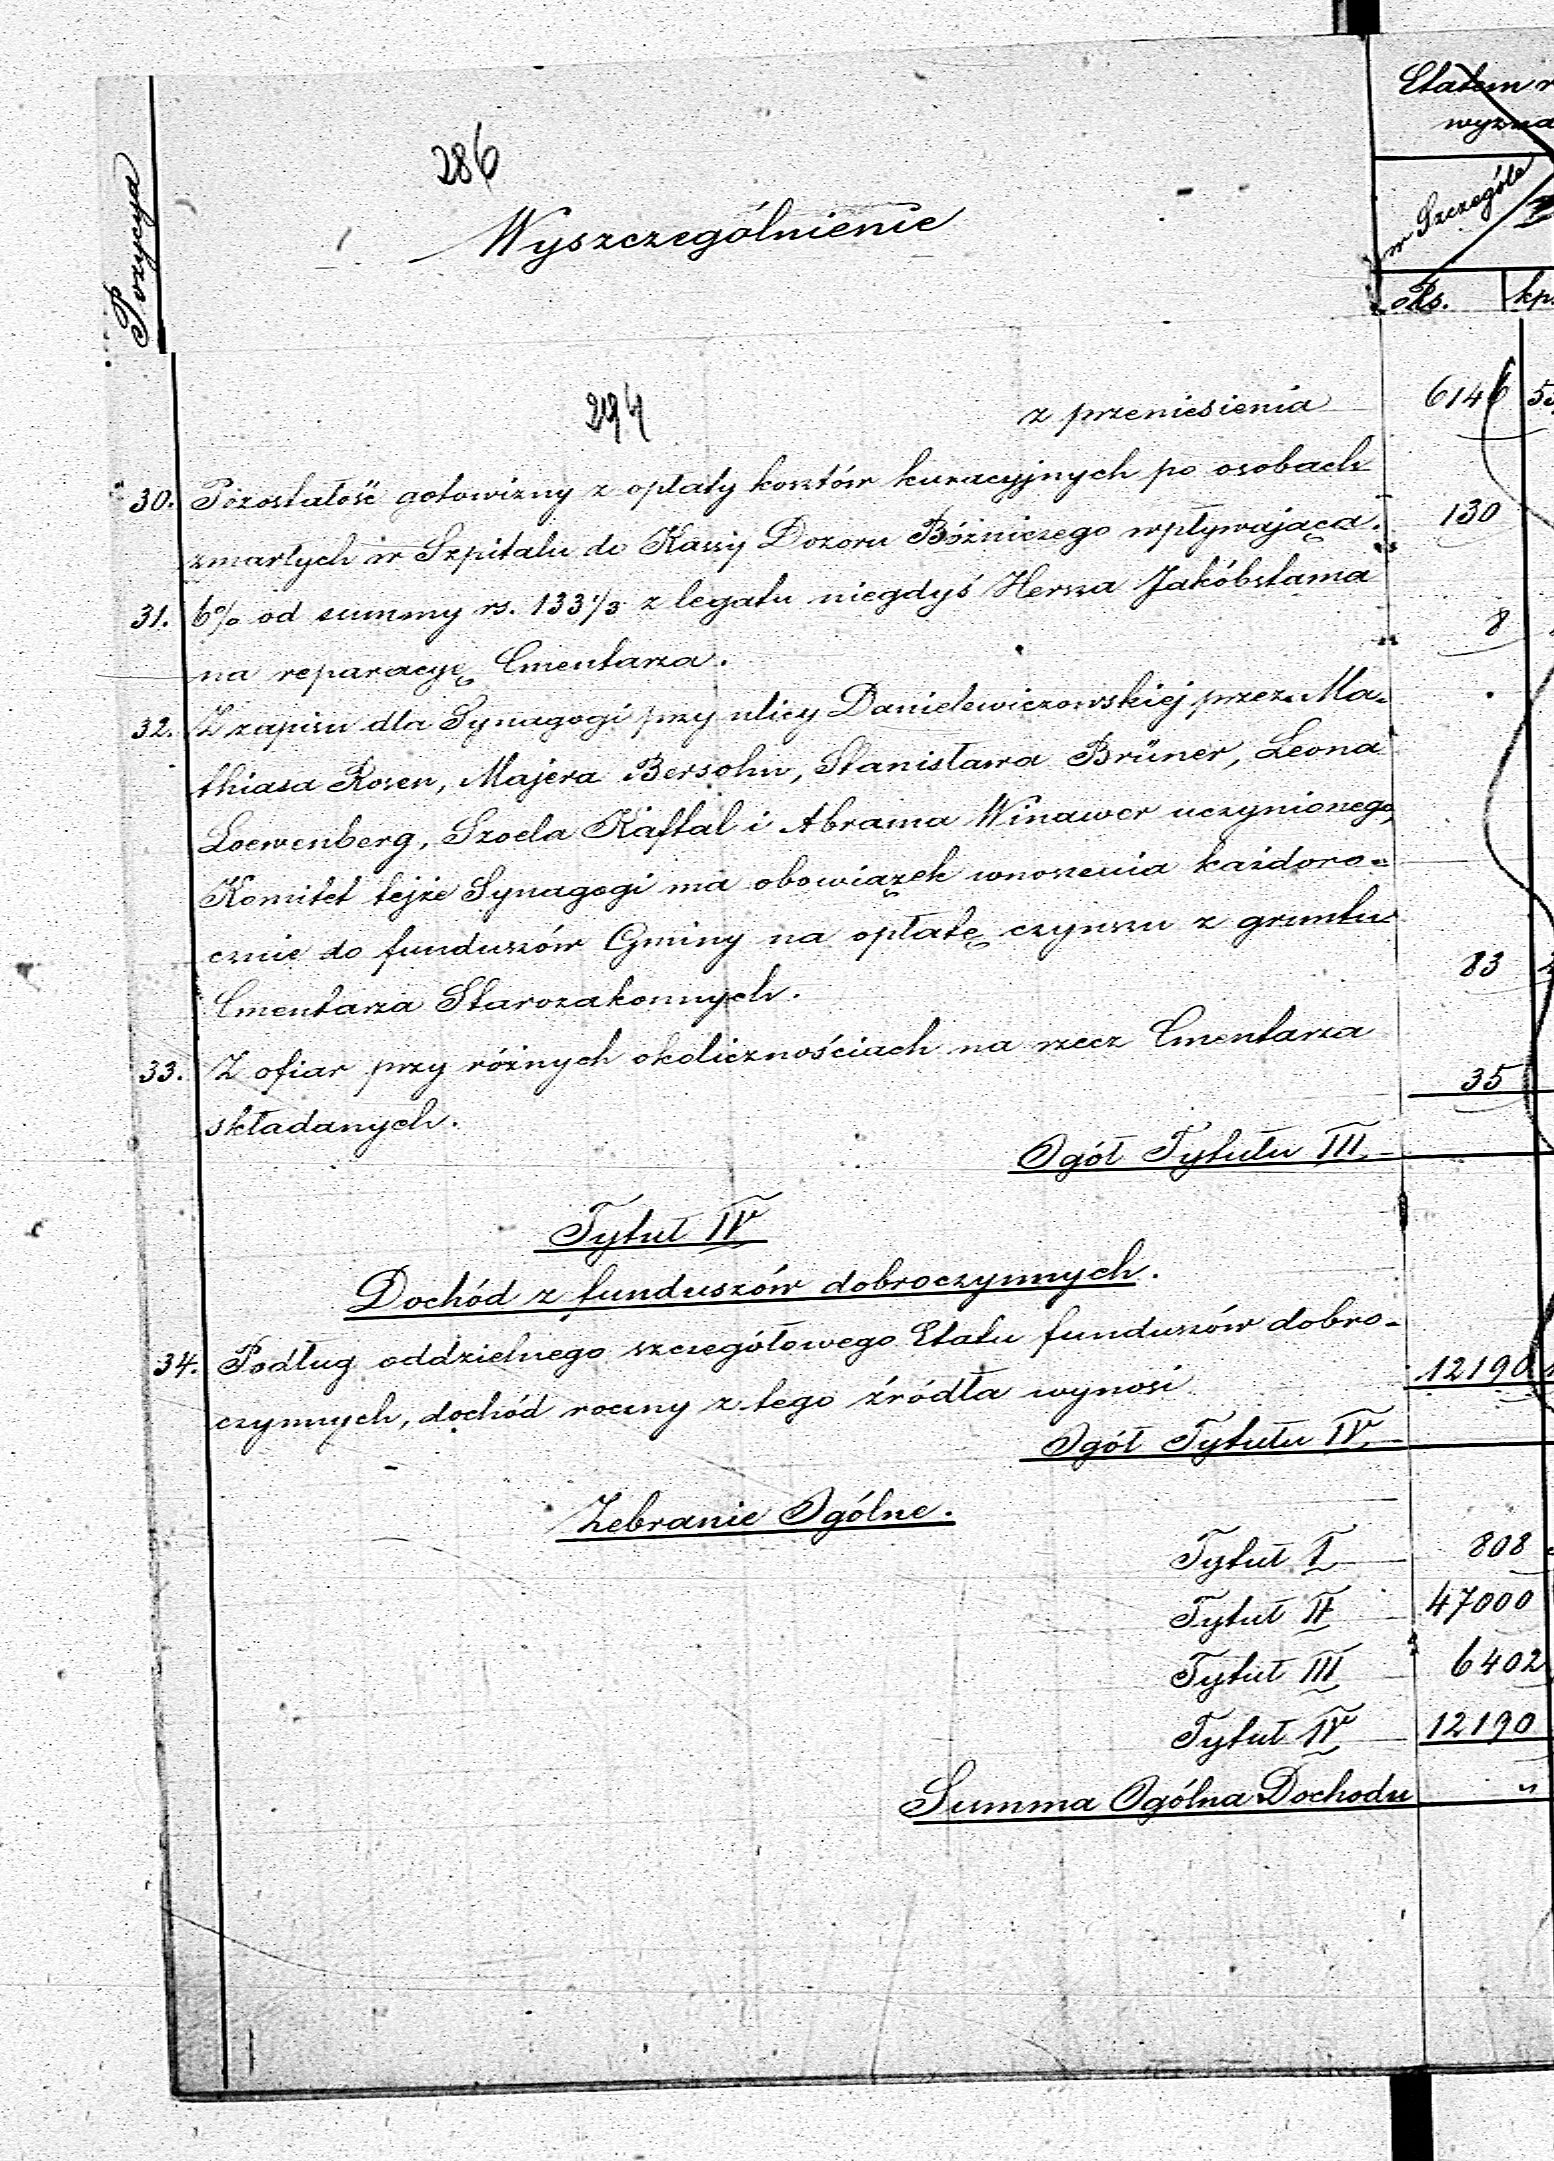 Etatem
wyzna
286
Pozycya
Wyszczególnienie
w Szczególe
Rs. kp.
294
z przeniesienia 6146
30. Pozostałość gotowizny z opłaty kosztów kuracyjnych po osobach
zmarłych w Szpitalu do Kassy Dozoru Bóżniczego wpływająca. 130
31. 6% od summy rs. 133 1/3 z legatu niegdyś Hersza Jakóbstama
na reparacyę Cmentarza. 8
32. Z zapisu dla Synagogi przy ulicy Danielewiczowskiej przez Ma-
thiasa Rosen, Majera Bersohn, Stanisława Brüner, Leona
Loewenberg, Szoela Kaftal i Abrama Winawer uczynionego,
Komitet tejże Synagogi ma obowiązek wnoszenia każdoro-
cznie do funduszów Gminy na opłatę czynszu z gruntu
Cmentarza Starozakonnych. 83
33. Z ofiar przy różnych okolicznościach na rzecz Cmentarza
składanych. 35
Ogół Tytułu III
Tytuł IV
Dochód z funduszów dobroczynnych.
34. Podług oddzielnego szczegółowego Etatu funduszów dobro-
czynnych, dochód roczny z tego źródła wynosi 12190
Ogół Tytułu IV
Zebranie Ogólne.
Tytuł I 808
Tytuł II 47000
Tytuł III 6402
Tytuł IV 12190
Summa Ogólna Dochodu "